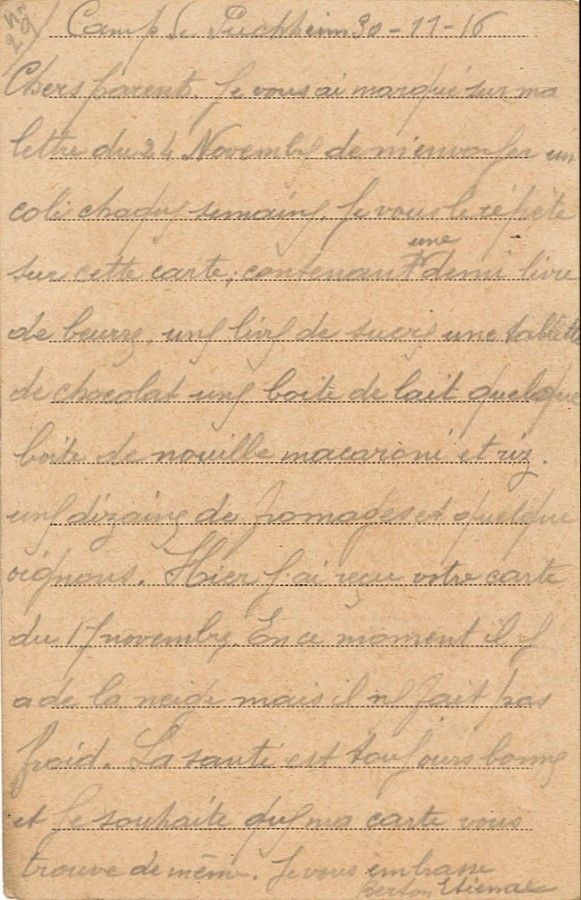 Camp de Puchheim 30-11-16
Chers parent. Je vous ai marqué sur ma
lettre du 24 Novembre de m'envoyer un
coli chaque semaine. Je vous le répète
sur cette carte; contenant une demi livre
de beurre, une livre de sucre une tablette
de chocolat une boite de lait quelque
boite de nouille macaroni et riz.
une dizaine de fromages et quelque
oignons. Hier j'ai reçu votre carte
du 17 novembre. En ce moment il y
a de la neige mais il ne fait pas
froid. La santé est toujours bonne
et je souhaite que ma carte vous
trouve de même. Je vous embrasse
Berton Etienne